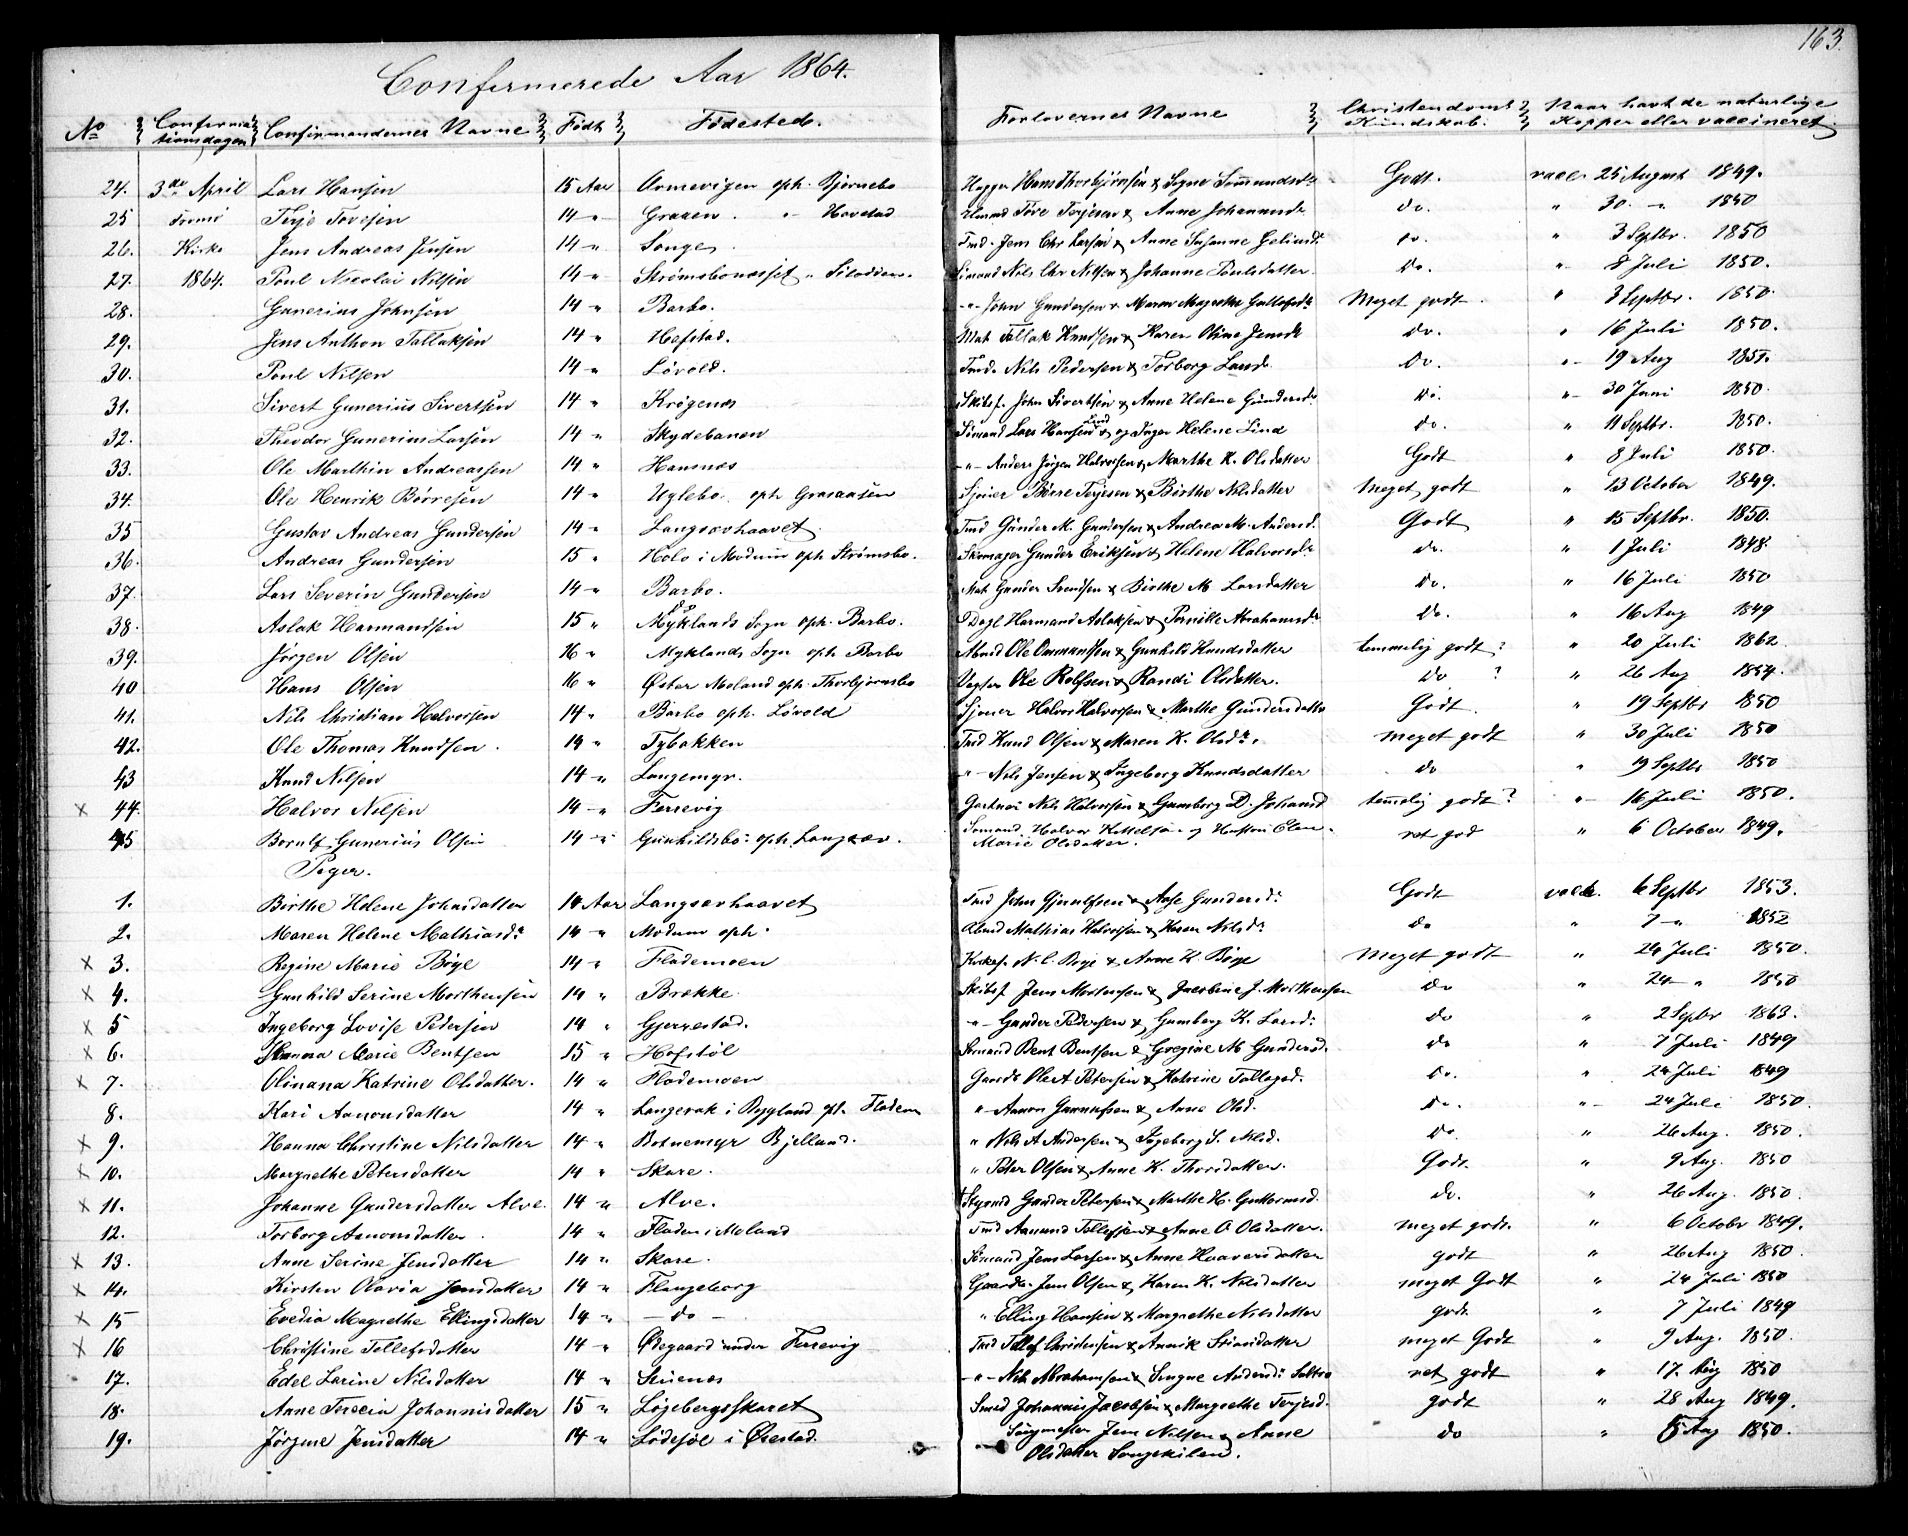 163.
Confirmerede Aar 1864.
No Confirmationsdagen Confirmandernes Navne Født Fødested. Forlovernes Navne Christendoms Kundskab. Naar havt de naturlige Kopper eller vaccineret.
24. 3die April Lars Hansen 15 Aar Arnevigen oph. Bjørnebo Hans Thorbjørnsen & Signe Godt. vacc. 25 August 1849.
25 Tromø Terje Tovesen 14 " Graaen. " Havstad Tove Terjesen & Anne Johannesdr do. " 30. " 1850
26. Kirke Jens Andreas Jensen 14 " Songe. Tmd. Jens Chr Larsen & Anne Susanne do. " 3 Septbr. 1850
27. 1864. Poul Nicolai Nilsen 14 " Sømand Nils Chr Nilsen & Johanne Poulsdatter do. " 8 Juli 1850.
28. Gunerius Johnsen 14 " Barbo. -"- John Gundersen & Maren Magrethe Meget godt. " 3 Septbr. 1850.
29. Jens Anthon Tallaksen 14 " Hafstad. Mat. Tallak Knudsen & Karen Oline Jensdr do. " 16 Juli 1850.
30. Poul Nilsen 14 " Løvold. Tmd. Nils Pedersen & Torborg Larsdr. do. " 19 Aug 1851.
31. Sivert Gunerius Sivertsen 14 " Krøgenes Skibsf. John Sivertsen & Anne Helene Gundersdr do. " 30 Juni 1850.
32. Theodor Gunerius Larsen 14 " Skydebanen Sømand Lars Hansen Lind & og Inger Helene Lind do. " 11 Septbr. 1850.
33. Ole Marthin Andreassen 14 " Hausnæs -"- Anders Jørgen Halvorsen & Marthe K. Olsdatter Godt " 8 Juli 1850.
34. Ole Henrik Børresen 14 " Uglebo oph Graaaasen Sjøuer Børre Terjesen & Birthe Nilsdatter Meget godt " 13 October 1849.
35 Gustav Andreas Gundersen 14 " Langsævhaavet. Tmd Gunder M. Gundersen & Andrea M. Andersd. Godt " 15 Septbr. 1850.
36. Andreas Gundersen 15 " Holo i Modum oph Strømsbo. Skomager Gunder Eriksen & Helene Halvorsdr do. " 1 Juli 1848.
37. Lars Severin Gundersen 14 " Barbo. Mat. Gunder Svendsen & Birthe M Larsdatter do. " 16 Juli 1850
38. Aslak Harmandsen 15 " Myklands Sogn oph. Barbo. Dagl Harmand Aslaksen & Pernille Abrahamsdr do. " 16 Aug 1849
39. Jørgen Olsen 16 " Myklands Sogn oph Barbo Ole Ommundsen & Gunhild Knudsdatter temmelig godt? " 20 Juli 1862
40 Hans Olsen 16 " Øster Moland oph. Thorbjørnsbo Vægter Ole Rolfsen & Randi Olsdatter. do ? " 26 Aug 1854.
41. Nils Christian Halvorsen 14 " Barbo oph. Løvold Sjøuer Halvor Halvorsen & Marthe Gundersdatter Godt. " 19 Septbr 1850
42. Ole Thomas Knudsen 14 " Tybakken Tmd Knud Olsen & Maren K. Olsdr. meget godt " 30 Juli 1850
43 Knud Nilsen 14 " Langemyr. -"- Nils Jensen & Ingeborg Knudsdatter do " 19 Septbr 1850
x 44. Halvor Nilsen 14 " Fersevig Nils Halvorsen & Gumborg D. Johansd temelig godt? " 16 Juli 1850.
45 Gunerius Olsen 14 " Gunhildsbo oph. Langsæv. Sømand Halvor Kittelsen og Hustru Elen Marie Olsdatter. net god " 6 October 1849.
Piger.
1. Birthe Helene Johnsdatter 14 Aar Langsævhaavet Tmd John & Aase Gundersdr Godt vacc. 6 Septbr 1853.
2. Maren Helene Mathiasdr 14 " Modum oph. Mathias Halvorsen & Karen Nilsdr do " 7 " 1852
x 3. Regine Marie Bøye 14 " Flademoen N. C. Boye & Anne K. Bøye Meget godt " 24 Juli 1850.
x 4. Gunhild Serine Morthensen 14 " Brække Skibsf. Jens Mortensen & Jacobine J. Morthensen do " 24 " 1850
x 5 Ingeborg Lovise Pedersen 14 " Gjerrestad. -"- Gunder Pedersen & Gumborg K. Larsd. do " 2 Sepbr 1863.
x 6. Hanna Marie Bentsen 15 " Hofstøl Sømand Bent Bentsen & Gregine M Gundersd. do " 7 Juli 1849
x 7. Olinana Katrine Olsdatter. 14 " Flademoen Gaardb. Ole A Petersen & Katrine Tallagsd. do. " 24 Juli 1849
8. Kari Aanonsdatter 14 " Langerak i Bygland op. Fladem " Aanon Gunnufsen & Anne Olsd. do. " 24 Juli 1850.
x 9. Hanna Christine Nilsdatter 14 " Botnemyr Bjelland. " Nils A Andersen & Ingeborg S. Nilsd. do. " 26 Aug. 1850.
x 10. Margrethe Petersdatter 14 " Skare. " Peter Olsen & Anne K. Thorsdatter. Godt. " 9 Aug. 1850
x 11. Johanne Gundersdatter Alve. 14 " Alve. Gunder Petersen & Marthe H. Guttormsd. do. " 26 Aug. 1850.
12. Torborg Aanonsdatter 14 " Fladen i Moland Tmd Aanund Tellefsen & Anne O Olsdatter. meget godt. " 6 Octobr 1849.
x 13. Anne Serine Jensdatter 14 " Skare. Sømand Jens Larsen & Anne Haavorsdatter godt " 26 Aug 1850.
x 14. Kirsten Olavia Jensdatter 14 " Flangeborg Gaardb. Jens Olsen & Karen K. Nilsdatter meget Godt " 24 Juli 1850
x 15 Evedia Magrethe Ellingsdatter 14 " - do - " Elling Hansen & Margrethe Nilsdatter godt. " 7 Juli 1849
x 16 Christine Tellefsdatter 14 " Ødegaard under Fersevig Tmd Tellef Christensen & Annik meget Godt " 9 Aug. 1850.
17. Edel Larine Nilsdatter 14 " -"- Nils Abrahamsen & Singne Andersdr net godt " 17. Aug 1850
18. Anne Terecia Johannisdatter 15 " Løgebergsskaret Smed Johannis Jacobsen & Margrethe Terjesd. godt " 28 Aug 1849.
19. Jørgine Jensdatter 14 " Lødesøl i Øiestad. Jens Nilsen & Anne Olsdatter Songekilen. do " 5 Aug 1850.